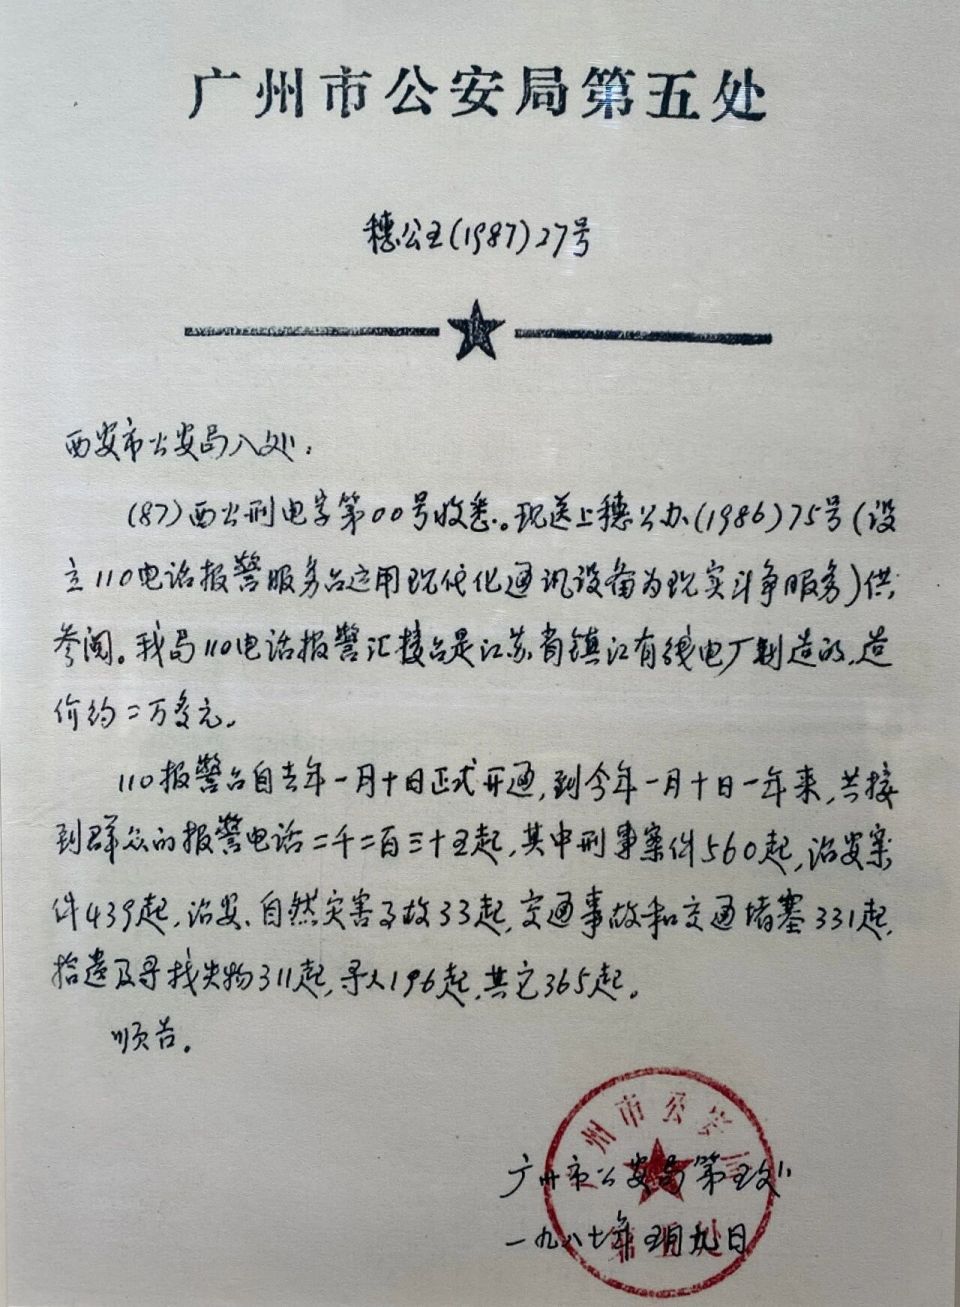 广州市公安局第五处
穗公五(1987)27号
西安市公安局八处:
(87)西公刑电字第00号收悉。现送上穗公办(1986)75号(设
立110电话报警服务台运用现代化通讯设备为现实斗争服务)供
参阅。我局110电话报警汇接台是江苏省镇江有线电厂制造的,造
价约二万多元。
110报警台自去年一月十日正式开通,到今年一月十日一年来,共接
到群众的报警电话二千二百三十五起,其中刑事案件560起,治安案
件439起,治安、自然灾害事故33起,交通事故和交通堵塞331起,
拾遗及寻找失物311起,寻人196起,其它365起。
顺告。
广州市公安局第五处
一九八七年五月九日
广州市公安局
第五处